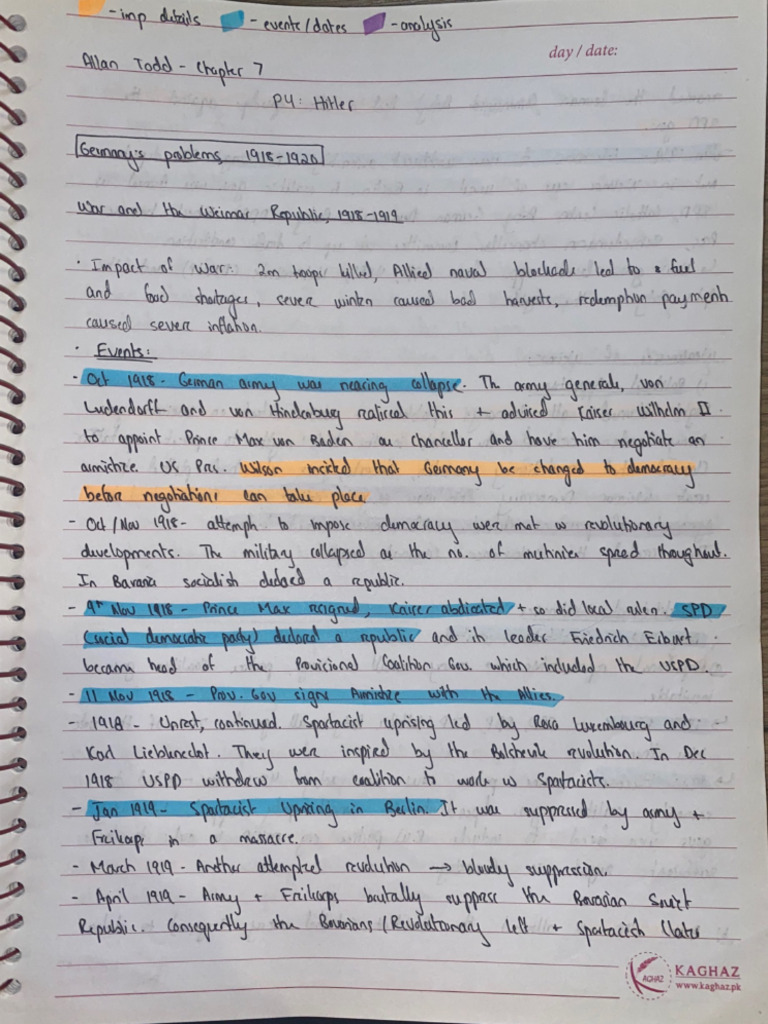 - imp details - events/dates - analysis
day / date:
Allan Todd - Chapter 7
P4: Hitler
Germany's problems, 1918-1920
War and the Weimar Republic, 1918-1919
· Impact of war: 2m troops killed, Allied naval blockade led to fuel
and food shortages, sever winter caused bad harvests, redemption payments
caused sever inflation.
· Events:
- Oct 1918 - German army was nearing collapse. The army generals, von
Ludendorff and von Hindenburg realised this + advised Kaiser Wilhelm II
to appoint Prince Max von Baden as chancellor and have him negotiate an
armistice. US Pres. Wilson incisted that Germany be changed to democracy
before negotiations can take place
- Oct/Nov 1918 - attempts to impose democracy were met w revolutionary
developments. The military collapsed as the no. of mutinies spread throughout.
In Bavaria socialists declared a republic.
- 9th Nov 1918 - Prince Max resigned, Kaiser abdicated + so did local rulers. SPD
(social democratic party) declared a republic and its leader Friedrich Ebert
became head of the Provisional Coalition Gov. which included the USPD.
- 11 Nov 1918 - Prov. Gov signs Armistice with the Allies.
- 1918 - Unrest, continued. Spartacist uprising led by Rosa Luxembourg and
Karl Liebknecht. They were inspired by the Bolshevik revolution. In Dec
1918 USPD withdrew from coalition to work w Spartacists.
- Jan 1919 - Spartacist Uprising in Berlin. It was suppressed by army +
Freikorps in a massacre.
- March 1919 - Another attempted revolution → bloody suppression.
- April 1919 - Army + Freikorps brutally suppress the Bavarian Soviet
Republic. Consequently the Bavarians/Revolutionary left + Spartacists (later
KAGHAZ
www.kaghaz.pk